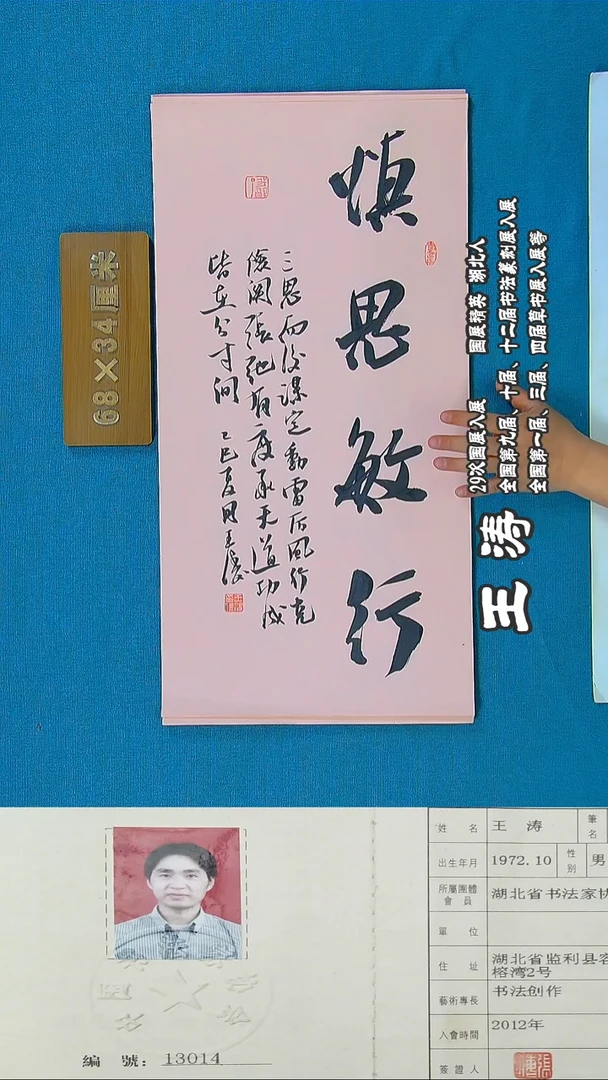 慎思敏行
三思而後謀定動雷厉風行克
儉闲張弛有度承天道功成
皆在分寸间 乙巳夏月王濤
68×34厘米
王涛
29次国展入展 国展精英 湖北人
全国第九届、十届、十二届书法篆刻展入展
全国第一届、三届、四届草书展入展等
姓 名 王 涛 筆名
出生年月 1972.10 性别 男
所屬團體會員 湖北省书法家协
單 位
住 址 湖北省监利县容
榕湾2号
藝術專長 书法创作
入會時間 2012年
簽證人
編 號: 13014